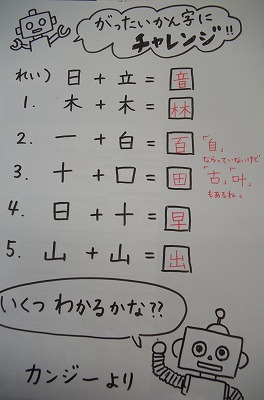 がったいかん字に
チャレンジ!!
れい) 日 + 立 = 音
1. 木 + 木 = 林
2. 一 + 白 = 百 「自」
ならっていないけど
3. 十 + 口 = 田 「古」「叶」
もあるね。
4. 日 + 十 = 早
5. 山 + 山 = 出
いくつ わかるかな??
カンジーより